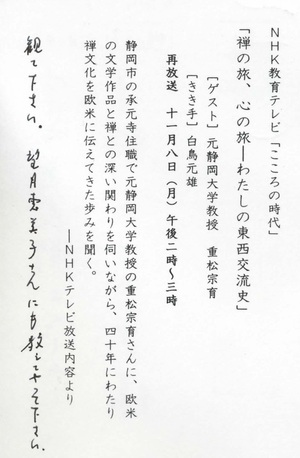 NHK教育テレビ「こころの時代」
「禅の旅、心の旅―わたしの東西交流史」
［ゲスト］元静岡大学教授　重松宗育
［きき手］白鳥元雄
再放送　十一月八日（月）午後二時～三時
静岡市の承元寺住職で元静岡大学教授の重松宗育さんに、欧米
の文学作品と禅との深い関わりを伺いながら、四十年にわたり
禅文化を欧米に伝えてきた歩みを聞く。
―NHKテレビ放送内容より
観て下さい。望月恵美子さんにも教えてやって下さい。